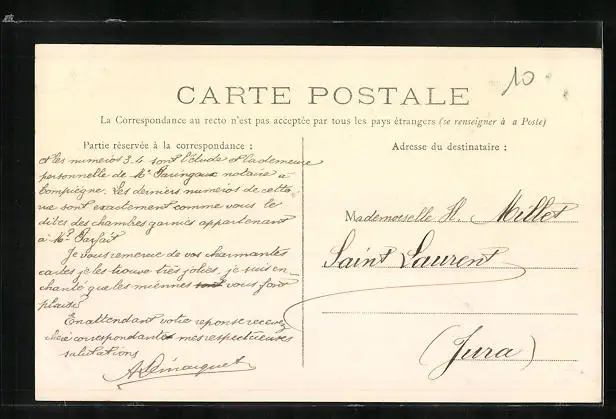 10
CARTE POSTALE
La Correspondance au recto n'est pas acceptée par tous les pays étrangers (se renseigner à a Poste)
Partie réservée à la correspondance :
et les numéros 3.4 sont l'étude et la demeure
personnelle de Me notaire a
Compiègne. Les derniers numéros de cette
rue sont exactement comme vous le
dites des chambres garnies appartenant
à Mr Parfait
Je vous remercie de vos charmantes
cartes je les trouve très jolies, je suis en-
chanté que les miennes sont vous font
plaisir
En attendant votre reponse recevez
chère correspondante mes respectueuses
salutations
Adresse du destinataire :
Mademoiselle H. Millet
Saint Laurent
(Jura)